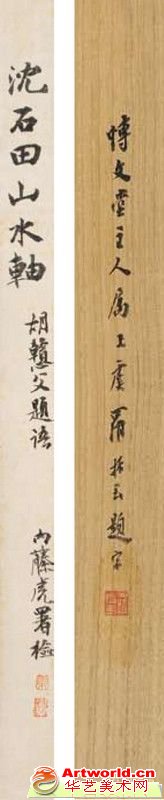 沈石田山水軸
胡韡父題語
內藤虎署檢
博文堂主人属上虞羅振玉題字
Artworld.cn
华艺美术网